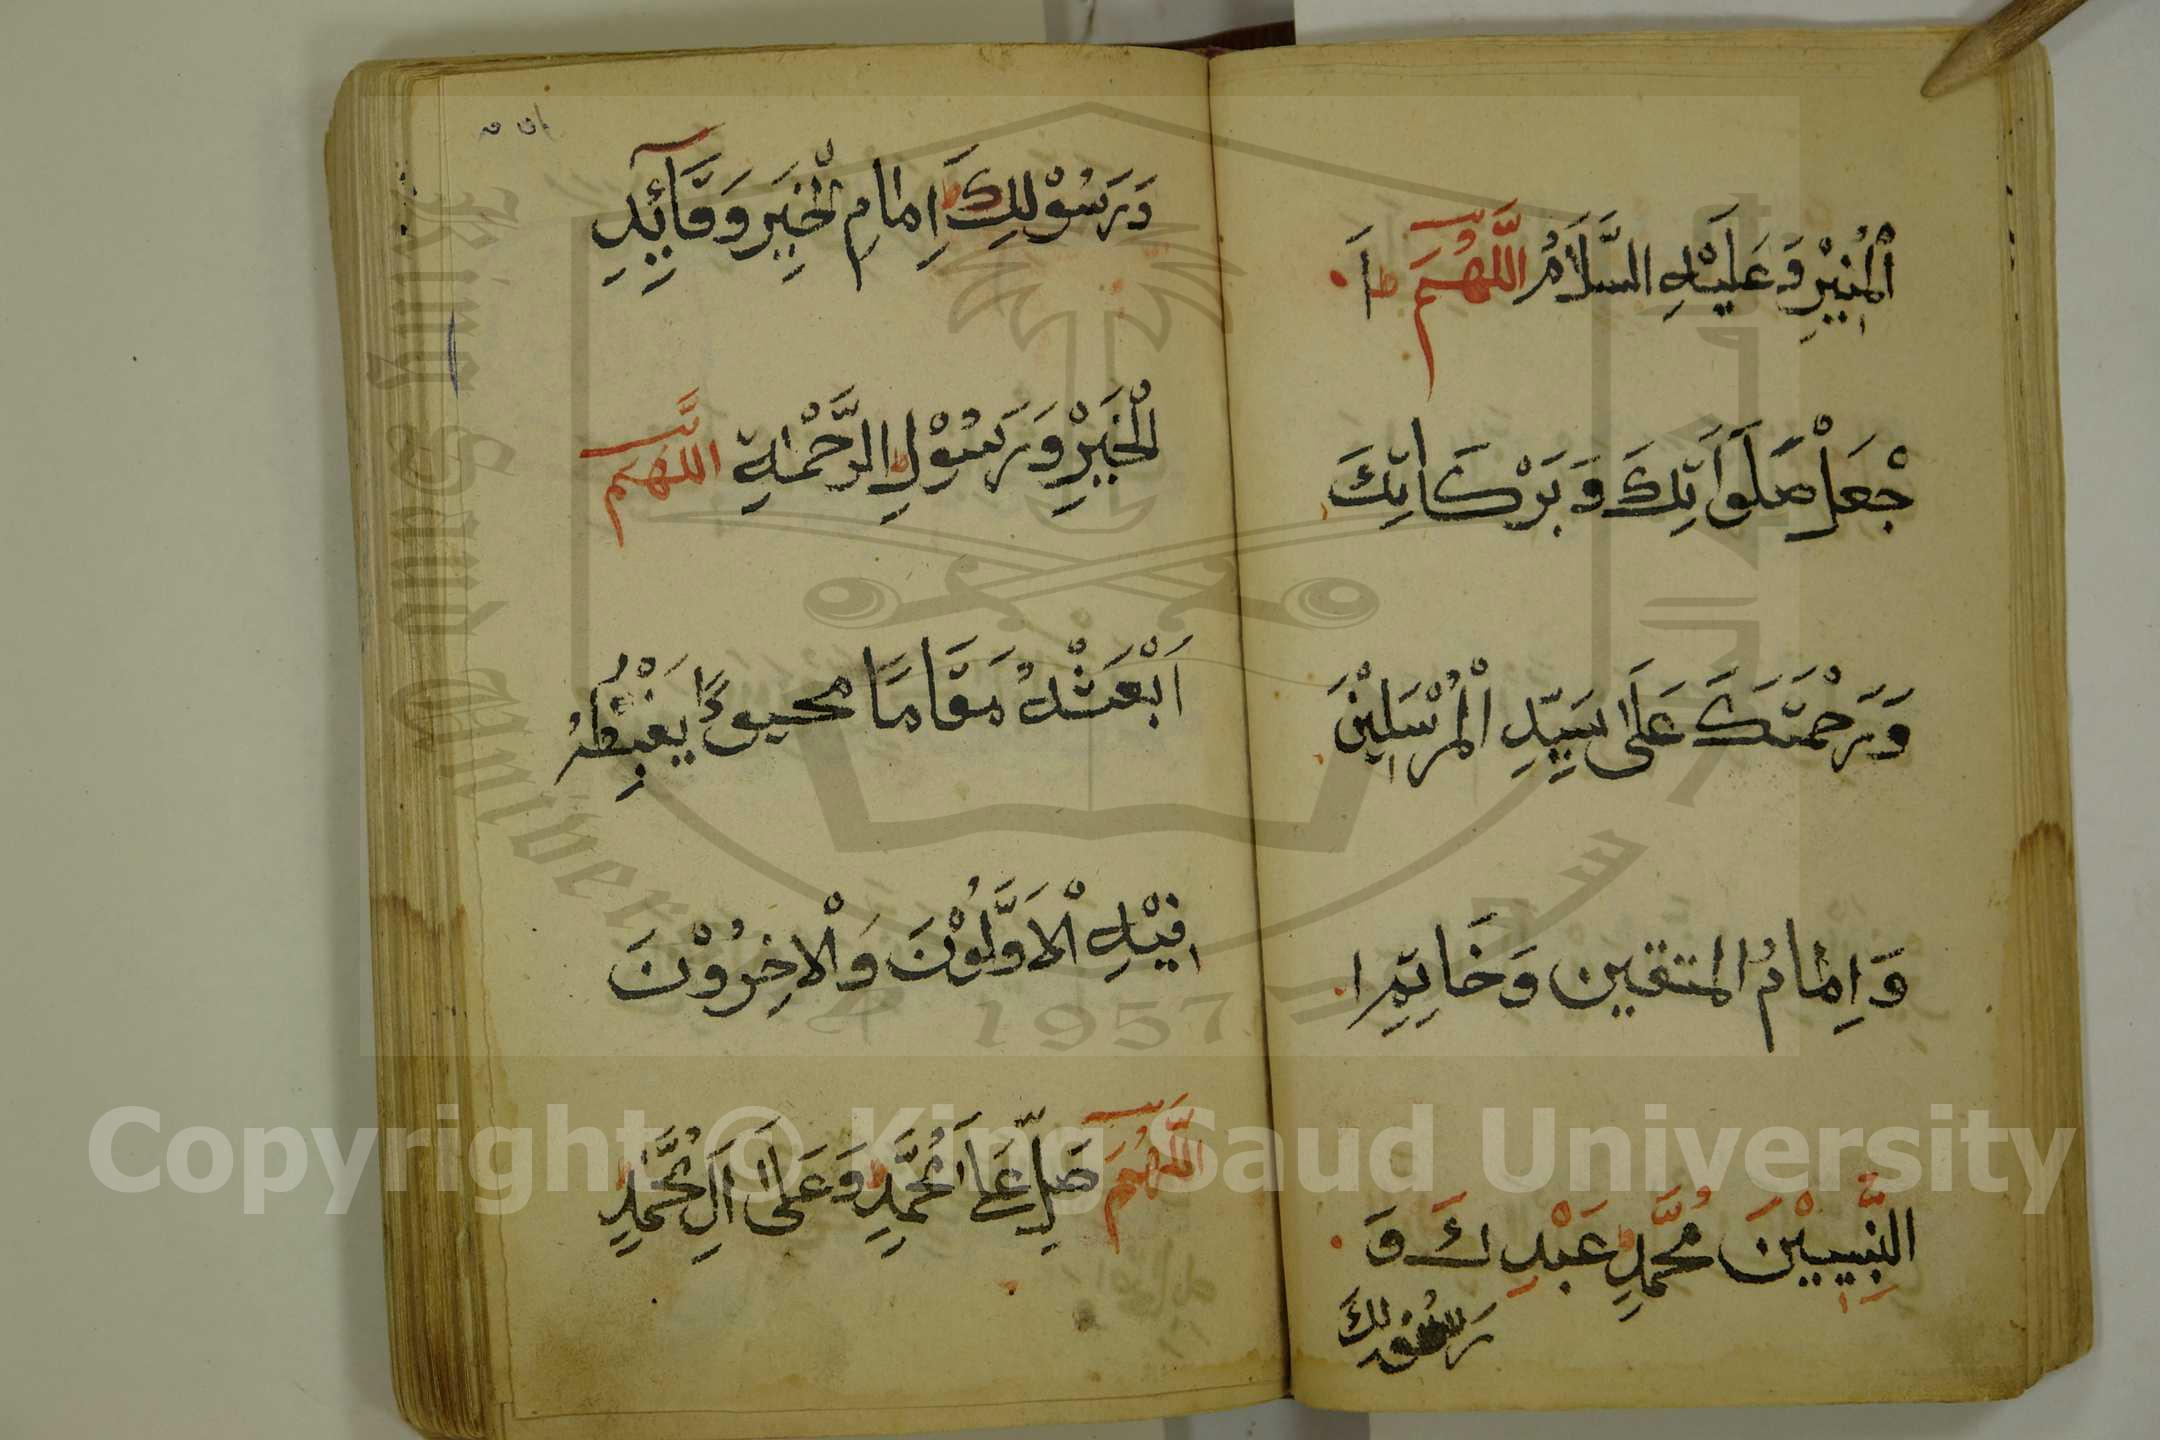 الْمُنِيْرِ وَعَلَيْهِ السَّلَامُ اللَّهُمَّ اَ
جْعَلْ صَلَوَاتِكَ وَبَرْكَاتِكَ
وَرَحْمَتَكَ عَلَى سَيِّدِ الْمُرْسَلِيْنَ
وَاِمَامُ المتقين وَخَاتِمِ ا
النَّبِيِيْنَ مُحَمَّدٍ عَبْدِكَ وَ
رَسُوْلِكَ
وَرَسُوْلِكَ اِمَامِ الْخَيِرِ وَقَآئِدِ
الْخَيْرِ وَرَسُوْلِ الرَّحْمَةِ اللهم
اَبْعَثْهُ مَقَامَا محموداً يَغْبِطُهُ
فِيْهِ الْاَوَّلُوْنَ وَالْاخِرُوْنَ
اللَّهُمَّ صَلِّ عَلَى مُحَمَّدٍ وَعَلَى اَلِ مُحَمَّدٍ
King Saud University
1957
Copyright © King Saud University